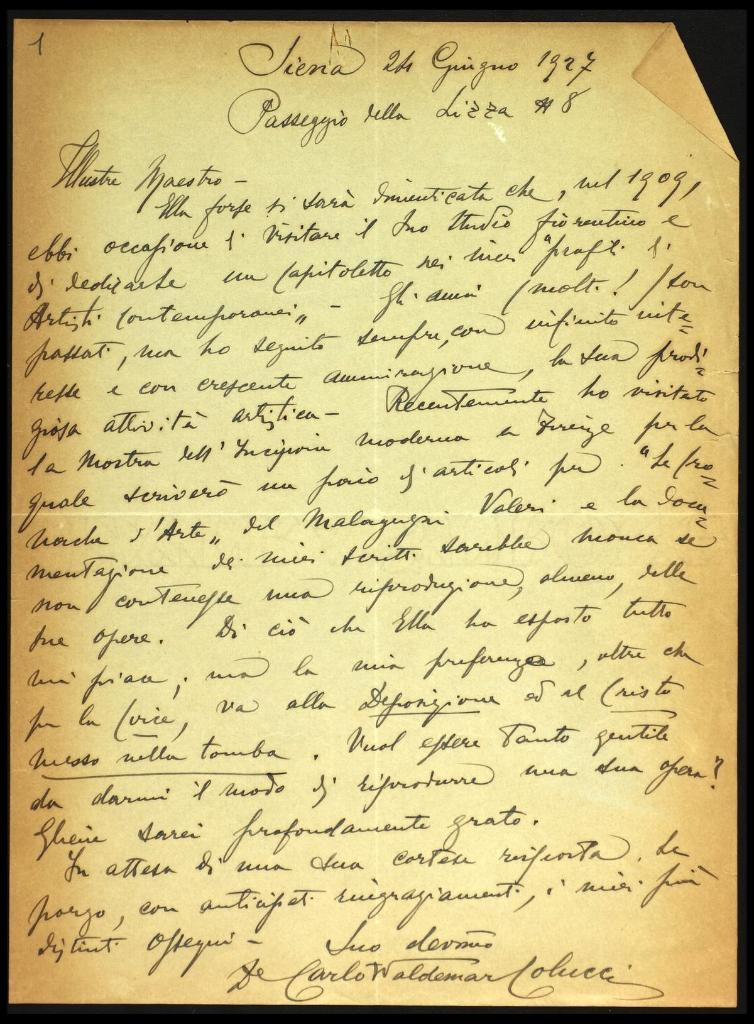 1
Siena 24 Giugno 1927
Passeggio della Lizza N 8
Illustre Maestro -
Ella forse si sarà dimenticata che, nel 1909,
ebbi occasione di visitare il Suo Studio fiorentino e
di dedicarle un Capitoletto nei miei "profili di
Artisti Contemporanei" - Gli anni (molti!) son
passati, ma ho seguito sempre, con infinito inte=
resse e con crescente ammirazione, la Sua prodi=
giosa attività artistica - Recentemente ho visitato
la Mostra dell'Incisione moderna a Firenze per la
quale scriverò un paio di articoli per "Le Cro=
nache d'Arte" del Malaguzzi Valeri e la docu=
mentazione dei miei scritti sarebbe monca se
non contenesse una riproduzione, almeno, delle
sue opere. Di ciò che Ella ha esposto tutto
mi piace; ma la mia preferenza, oltre che
per la Croce, va alla Deposizione ed al Cristo
messo nella tomba. Vuol essere tanto gentile
da darmi il modo di riprodurre una sua opera?
Gliene sarei profondamente grato.
In attesa di una Sua cortese risposta. Le
porgo, con anticipati ringraziamenti, i miei più
distinti Ossequi - Suo devmo
De Carlo Waldemar Colucci